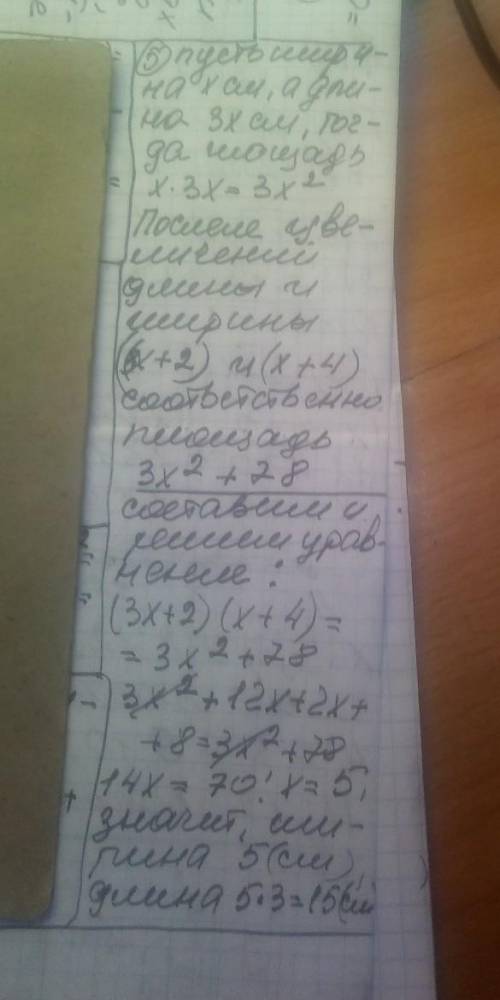 ⑤ пусть шири-
на x см, а дли-
на 3x см, тог-
да площадь
x·3x=3x²
После уве-
личений
длины и
ширины
(x+2) и (x+4)
соответственно
площадь
3x²+78
составим и
решим урав-
нение:
(3x+2)(x+4)=
=3x²+78
3x²+12x+2x+
+8=3x²+78
14x=70; x=5,
значит, ши-
рина 5(см),
длина 5·3=15(см)